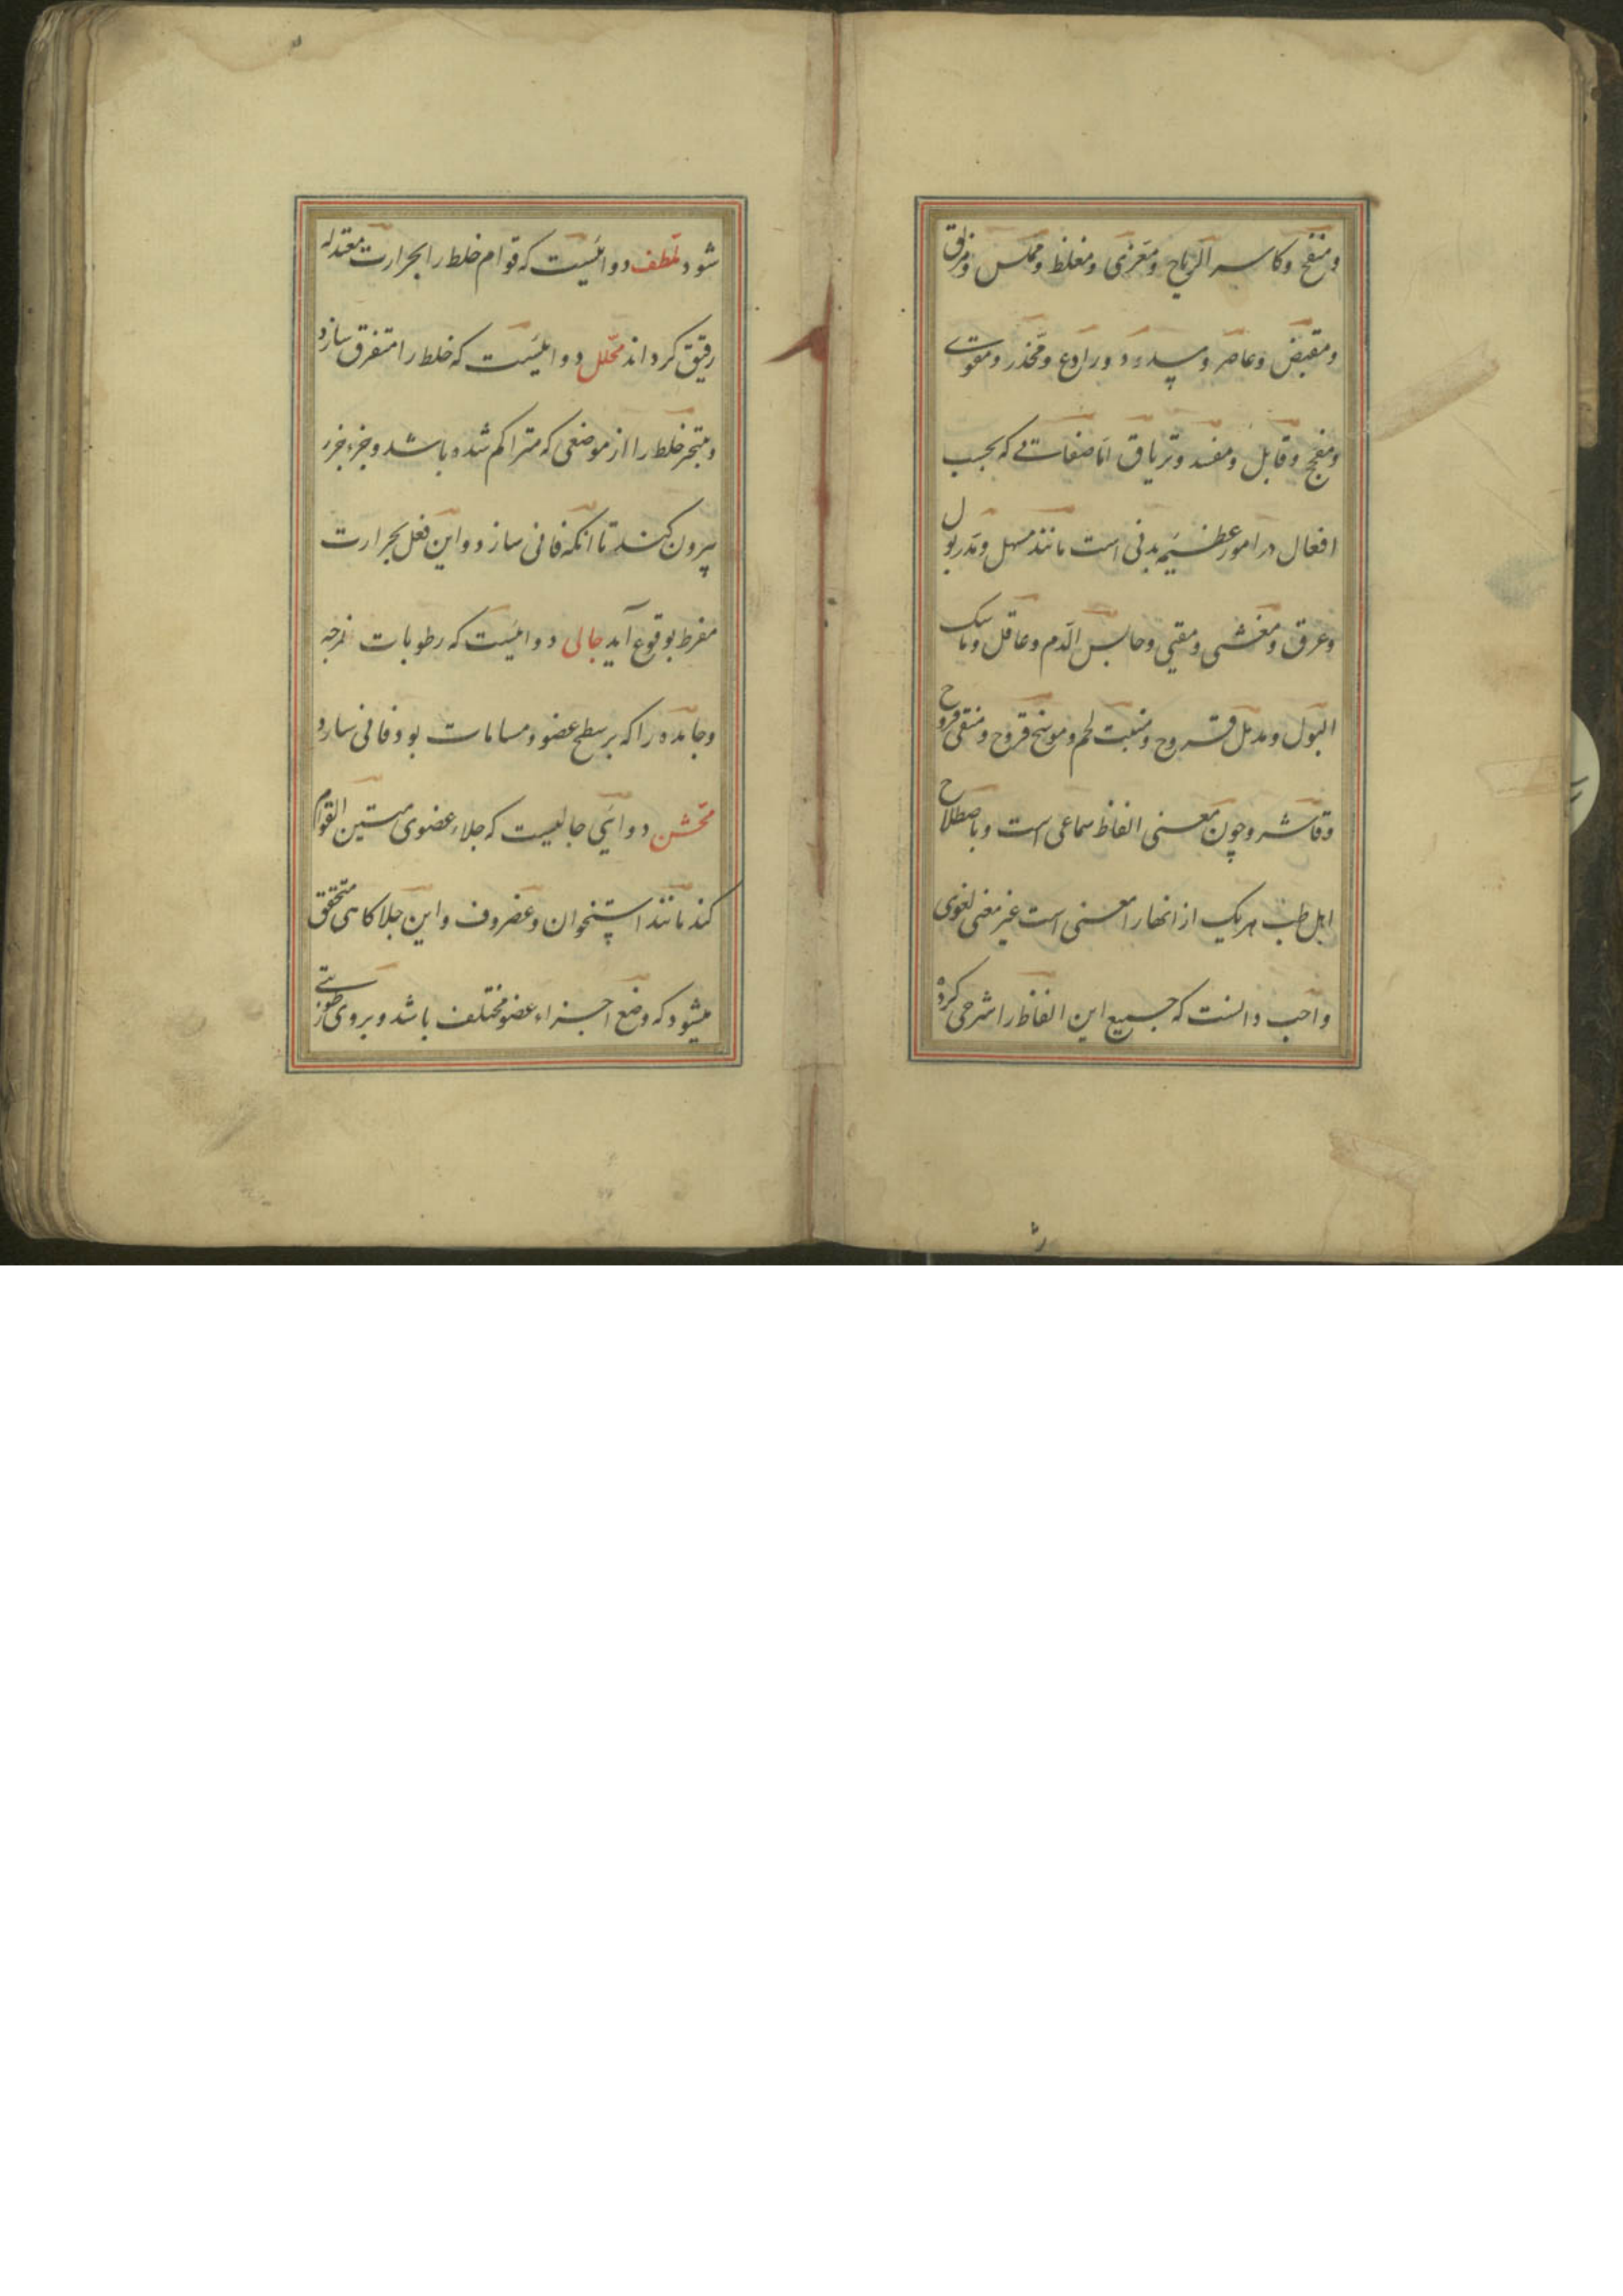 ومنفخ وکاسر الریاح ومغری ومغلظ ومملس ومزلق
ومقبض وعاصر ومسدد ورادع ومخدر ومقوی
ومفجج وقابل ومفسد وتریاق اما صفاتی که بحسب
افعال در امور عظیمه بدنی است مانند مسهل ومدر بول
وعرق ومغشی ومقیی وحابس الدم وعاقل وماسک
البول ومدمل قروح ومنبت لحم وموسخ قروح ومنقی قروح
وقاشر وچون معنی الفاظ سماعی است وباصطلاح
اهل طب هر یک از انها را معنی است غیر معنی لغوی
واجب دانست که جمیع این الفاظ را شرحی کرده
شود ملطف دوائیست که قوام خلط را بحرارت معتدله
رقیق کرداند محلل دوائیست که خلط را متفرق سازد
ومتبخر خلط را از موضعی که متراکم شده باشد وجزء جزء
بیرون کند تا انکه فانی سازد واین فعل بحرارت
مفرط بوقوع آید جالی دوائیست که رطوبات لزجه
وجامده را که بر سطح عضو ومسامات بود فانی سازد
مخشن دوائی جالیست که جلاء عضوی متین القوام
کند مانند استخوان وغضروف واین جلا کاهی متحقق
میشود که وضع اجزاء عضو مختلف باشد وبروی رطوبتی